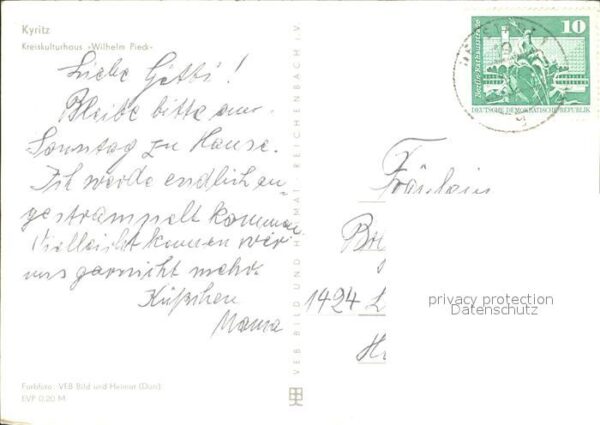 Kyritz
Kreiskulturhaus »Wilhelm Pieck«
Liebe Gitti!
Bleibe bitte am
Sonntag zu Hause.
Ich werde endlich an-
gestrampelt kommen
Vielleicht kennen wir
uns garnicht mehr.
Küßchen
Mama
VEB BILD UND HEIMAT REICHENBACH I. V.
Berlin-Rathausstraße
10
DEUTSCHE DEMOKRATISCHE REPUBLIK
Fräulein
1424 L
privacy protection
Datenschutz
Farbfoto: VEB Bild und Heimat (Darr)
EVP 0,20 M